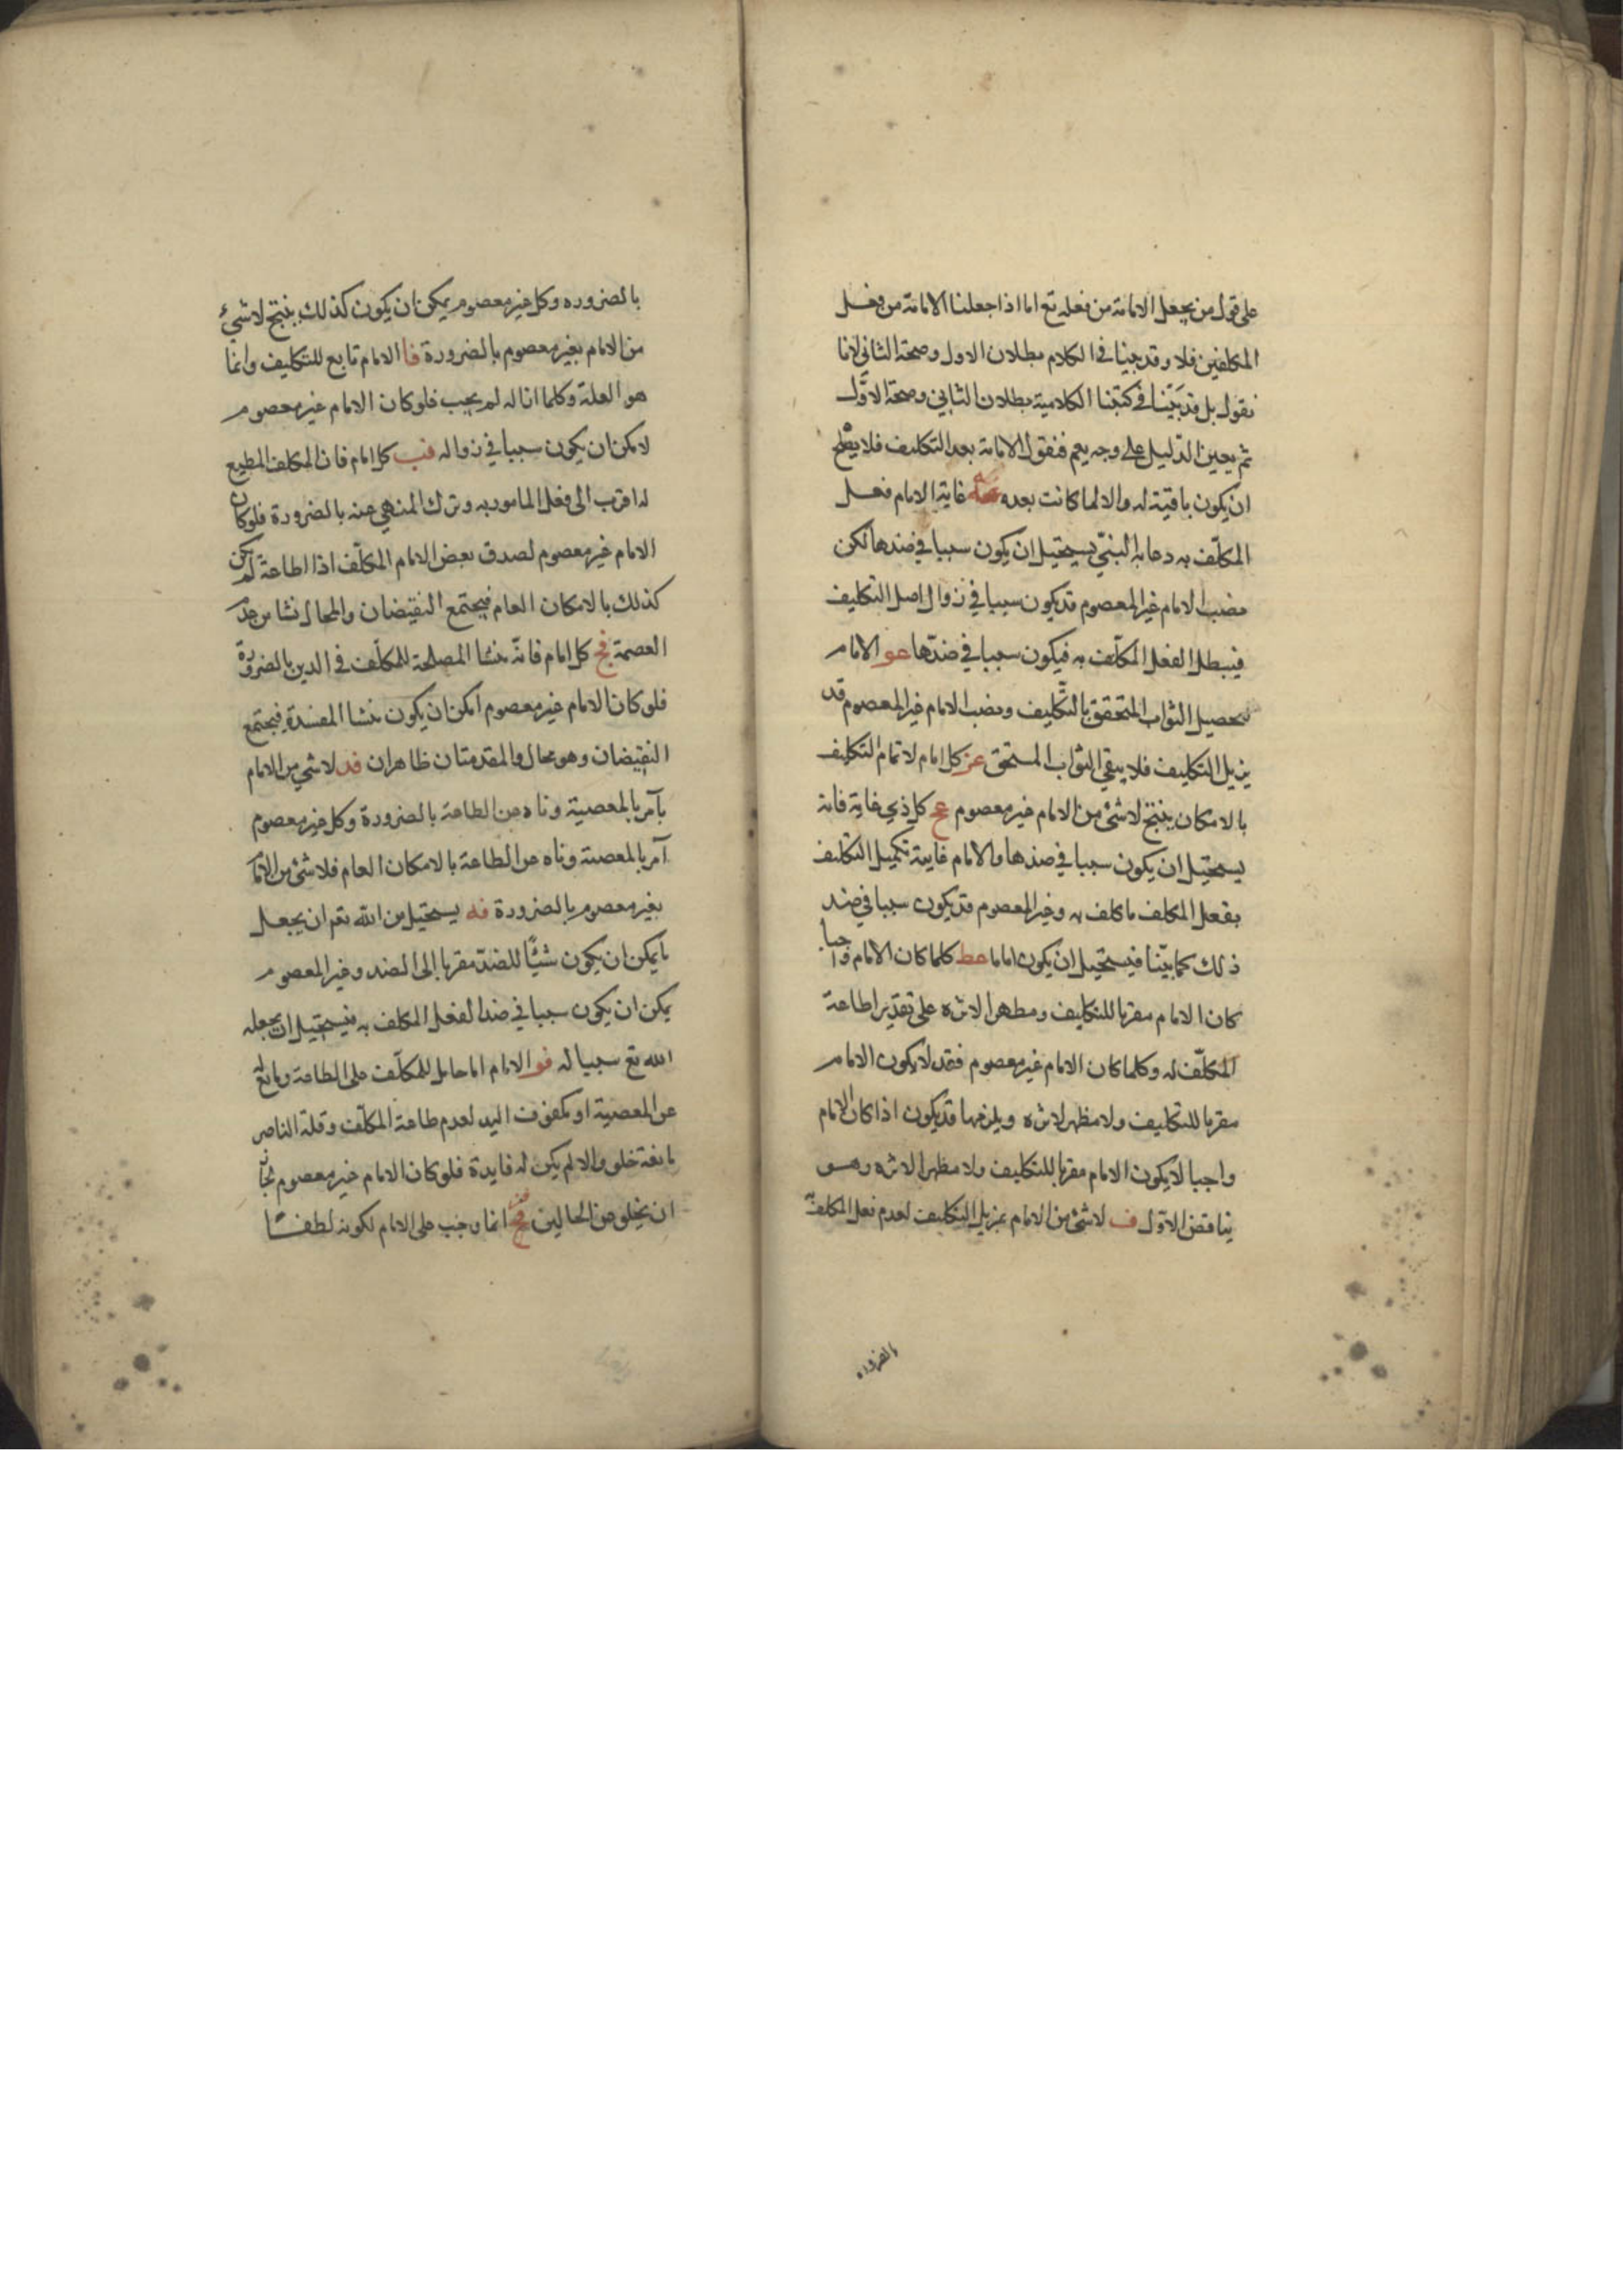 على قول من يجعل الامامة من فعله تع اما اذا جعلنا الامامة من فعل
المكلفين فلا وقد بينا في الكلام بطلان الاول وصحة الثاني لانا
نقول بل قد بيّنا في كتبنا الكلامية بطلان الثاني وصحة الاوّل
ثم يعين الدّليل على وجه يعم فنقول الامامة بعد التكليف فلا يصلح
ان يكون باقية له والا لما كانت بعده عه غاية الامام فعل
المكلّف به دعابه النبيّ يستحيل ان يكون سببا في ضدها لكن
نصب الامام غير المعصوم قد يكون سببا في زوال اصل التكليف
فيبطل الفعل المكلّف به فيكون سببا في ضدّها عو الامام
لتحصيل الثواب المتحقق بالتّكليف ونصب الامام غير المعصوم قد
يزيل التكليف فلا يبقى الثواب المستحق عز كل امام لاتمام التكليف
بالامكان ينتج لا شئ من الامام غير معصوم عح كل ذي غاية فانه
يستحيل ان يكون سببا في ضدها والامام غايية تكميل التكليف
بفعل المكلف ما كلف به وغير المعصوم قد يكون سببا في ضد
ذلك كما بيّنا فيستحيل ان يكون اماما عط كلما كان الامام واجبا
كان الامام مقربا للتكليف ومظهرا لاثره على تقدير اطاعة
المكلّف له وكلما كان الامام غير معصوم فقد لا يكون الامام
مقربا للتكليف ولا مظهر لاثره ويلزمها قد يكون اذا كان الامام
واجبا لا يكون الامام مقربا للتكليف ولا مظهرا لاثره وهو
يناقض الاوّل ف لا شئ من الامام بمزيل التكليف لعدم فعل المكلف به
بالضروره
بالضروره وكل غير معصوم يمكن ان يكون كذلك ينتج لا شئ
من الامام بغير معصوم بالضرورة فا الامام تابع للتكليف وانما
هو العلة وكلما ازاله لم يجب فلو كان الامام غير معصوم
لامكن ان يكون سببا في زواله فب كل امام فان المكلف المطيع
له اقرب الى فعل المامور به وترك المنهي عنه بالضرورة فلو كان
الامام غير معصوم لصدق بعض الامام المكلّف اذا اطاعة لم يكن
كذلك بالامكان العام فيجتمع النقيضان والمحال نشا من عدم
العصمة فج كل امام فانّه منشا المصلحة للمكلّف في الدين بالضرورة
فلو كان الامام غير معصوم امكن ان يكون منشا المفسدة فيجتمع
النقيضان وهو محال والمقدمتان ظاهران فد لا شي من الامام
بآمر بالمعصية وناه من الطاعة بالضرورة وكل غير معصوم
آمر بالمعصية وناه عن الطاعة بالامكان العام فلا شئ من الامام
بغير معصوم بالضرورة فه يستحيل من الله تعم ان يجعل
ما يمكن ان يكون شيئًا للضدّ مقربا إلى الضد وغير المعصوم
يمكن ان يكون سببا في ضد الفعل المكلف به فيستحيل ان يجعله
الله تع سببا له فو الامام اما حامل للمكلّف على الطاعة ومانع له
عن المعصية او مكفوف اليد لعدم طاعة المكلّف وقلة الناصر
مانعة خلو والا لم يكن له فايدة فلو كان الامام غير معصوم لجاز
ان يخلو من الحالين فح انما وجب على الامام لكونه لطفًا